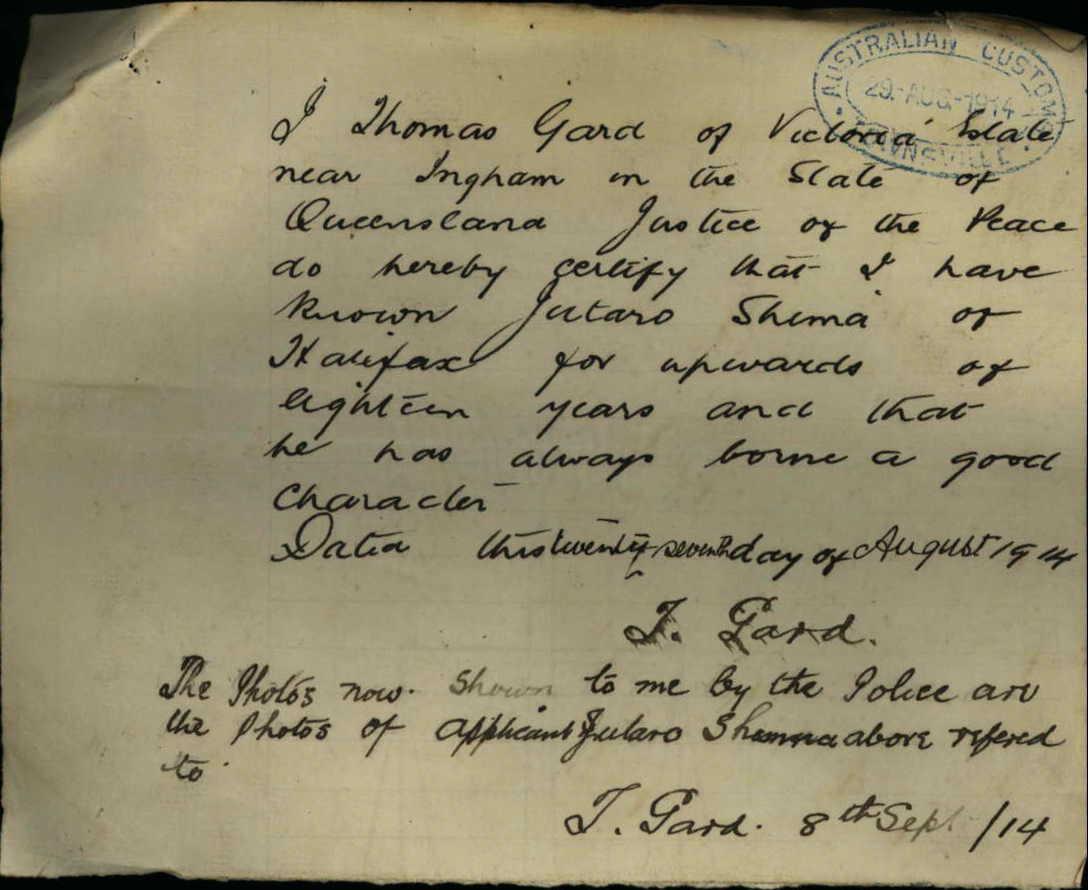 AUSTRALIAN CUSTOMS
29-AUG-1914
TOWNSVILLE
I Thomas Gard of Victoria Estate
near Ingham in the State of
Queensland Justice of the Peace
do hereby certify that I have
known Jutaro Shima of
Halifax for upwards of
eighteen years and that
he has always borne a good
character
Dated this twenty-seventh day of August 1914
T. Gard.
The Photos now shown to me by the Police are
the Photos of applicant Jutaro Shima above refered
to
T. Gard. 8th Sept /14